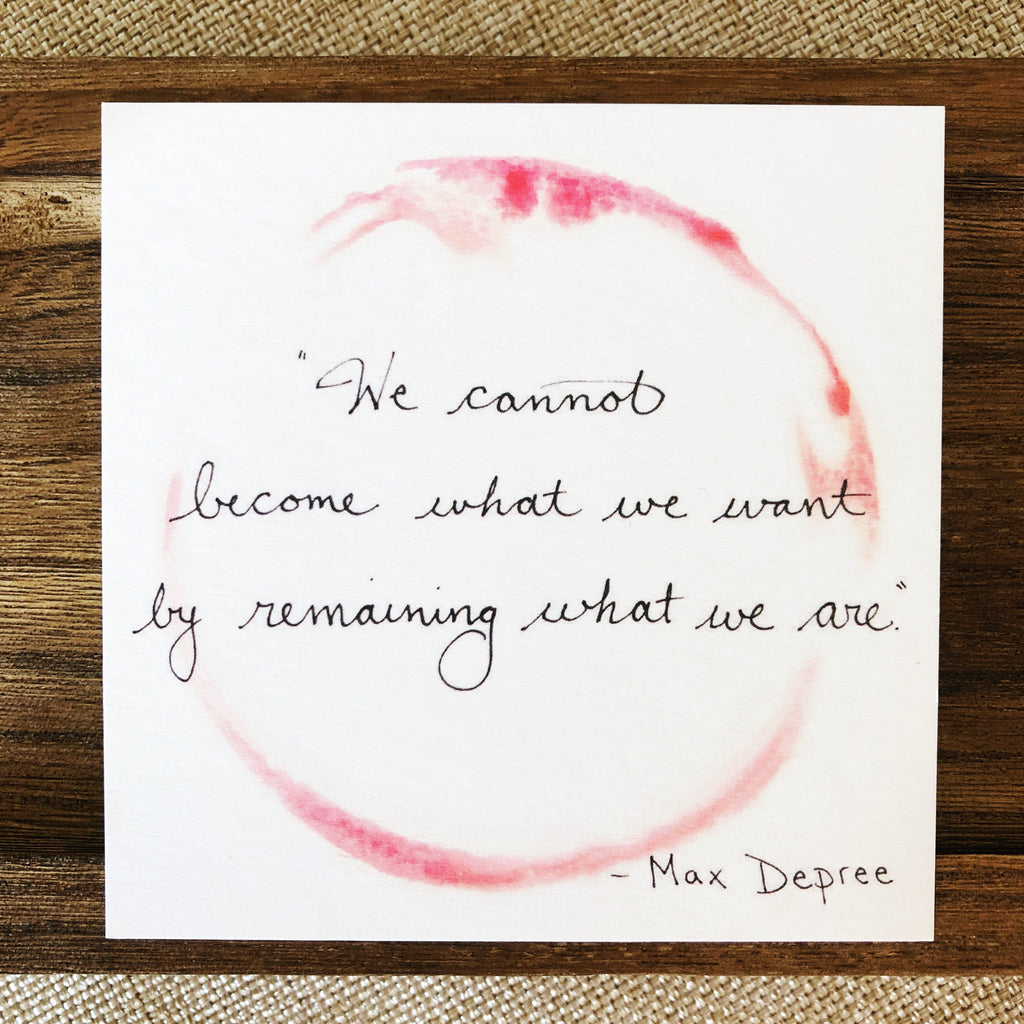 "We cannot
become what we want
by remaining what we are."
- Max Depree